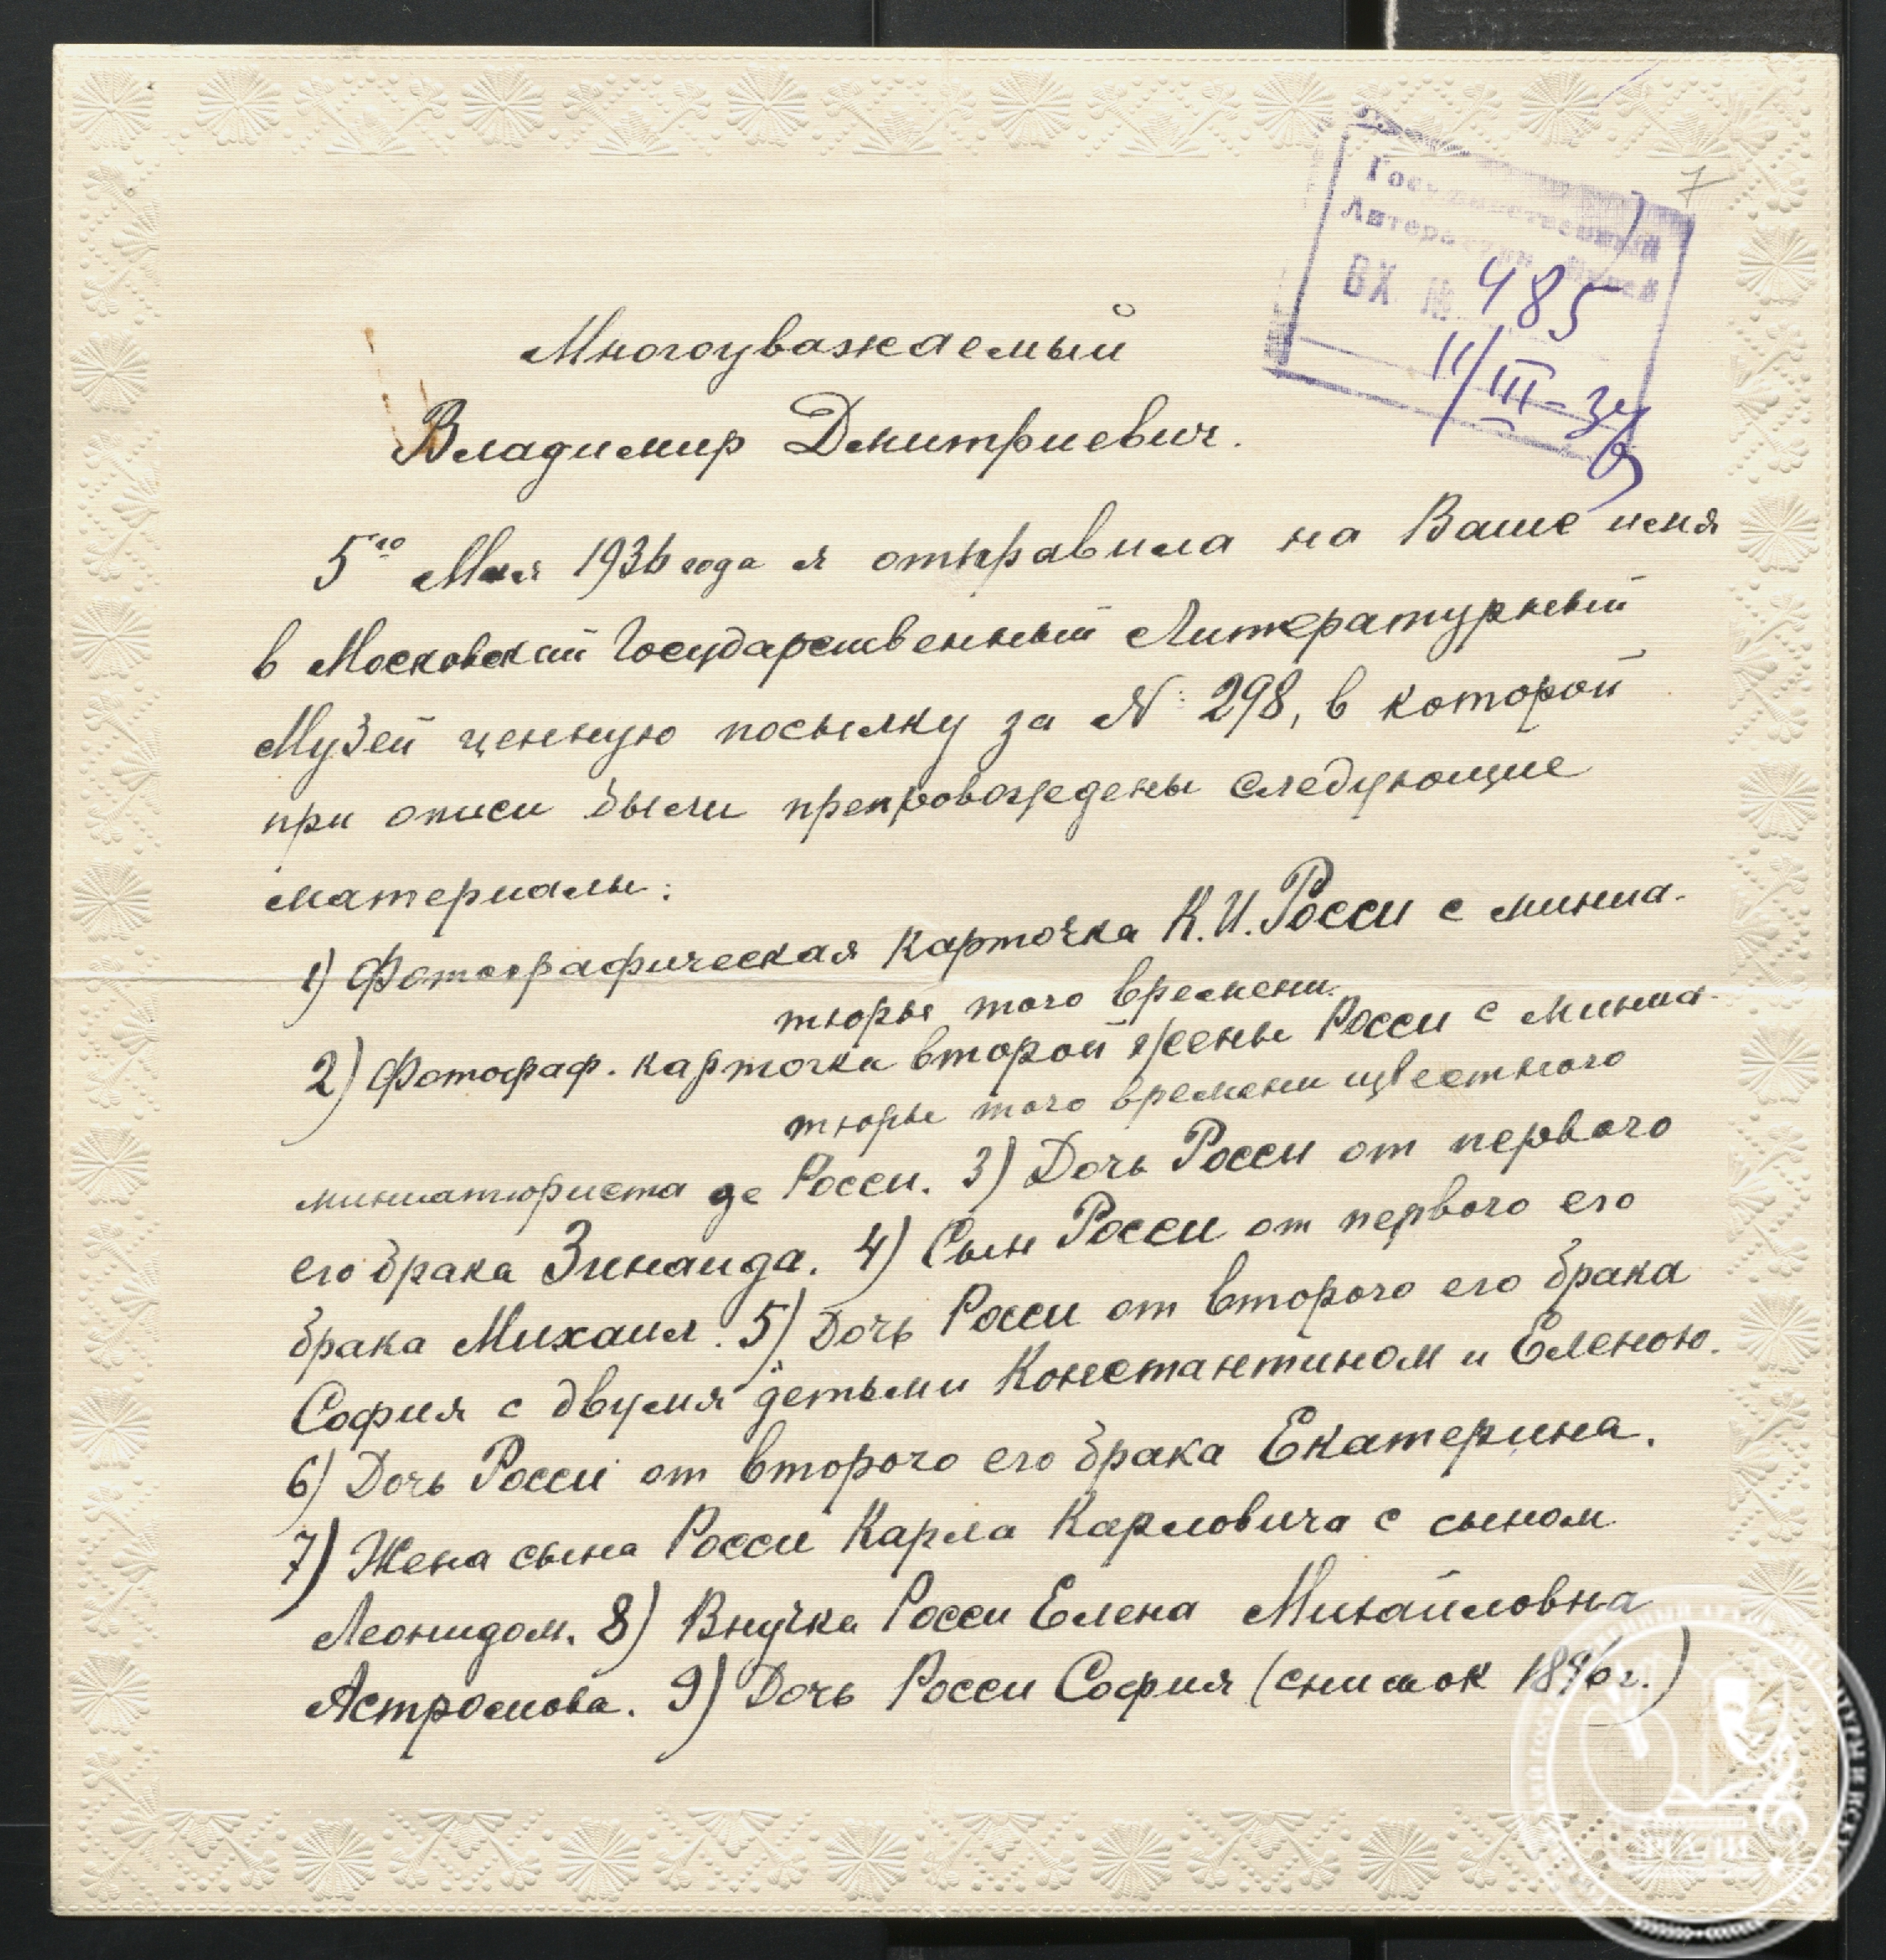 7
Государственный
Литературн. Музей
ВХ. №. 485
11/III-37
Многоуважаемый
Владимир Дмитриевич.
5го Мая 1936 года я отправила на Ваше имя
в Московский Государственный Литературный
Музей ценную посылку за №: 298, в которой
при описи были препровождены следующие
материалы:
1) Фотографическая карточка К.И. Росси с миниа-
тюры того времени.
2) Фотограф. карточка второй жены Росси с миниа-
тюры того времени цвестного
миниатюриста де Росси. 3) Дочь Росси от первого
его брака Зинаида. 4) Сын Росси от первого его
брака Михаил. 5) Дочь Росси от второго его брака
София с двумя детьми Константином и Еленою.
6) Дочь Росси от второго его брака Екатерина.
7) Жена сына Росси Карла Карловича с сыном
Леонидом. 8) Внучка Росси Елена Михайловна
Астромова. 9) Дочь Росси София (снимок г.)
РГАЛИ